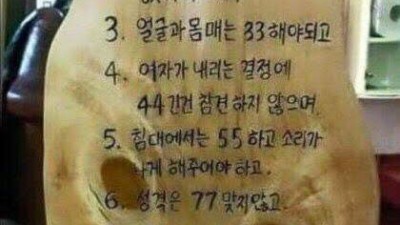 3. 얼굴과 몸매는 33 해야되고
4. 여자가 내리는 결정에
44건건 참견하지 않으며,
5. 침대에서는 55 하고 소리가
나게 해주어야 하고.
6. 성격은 77 맞지않고.